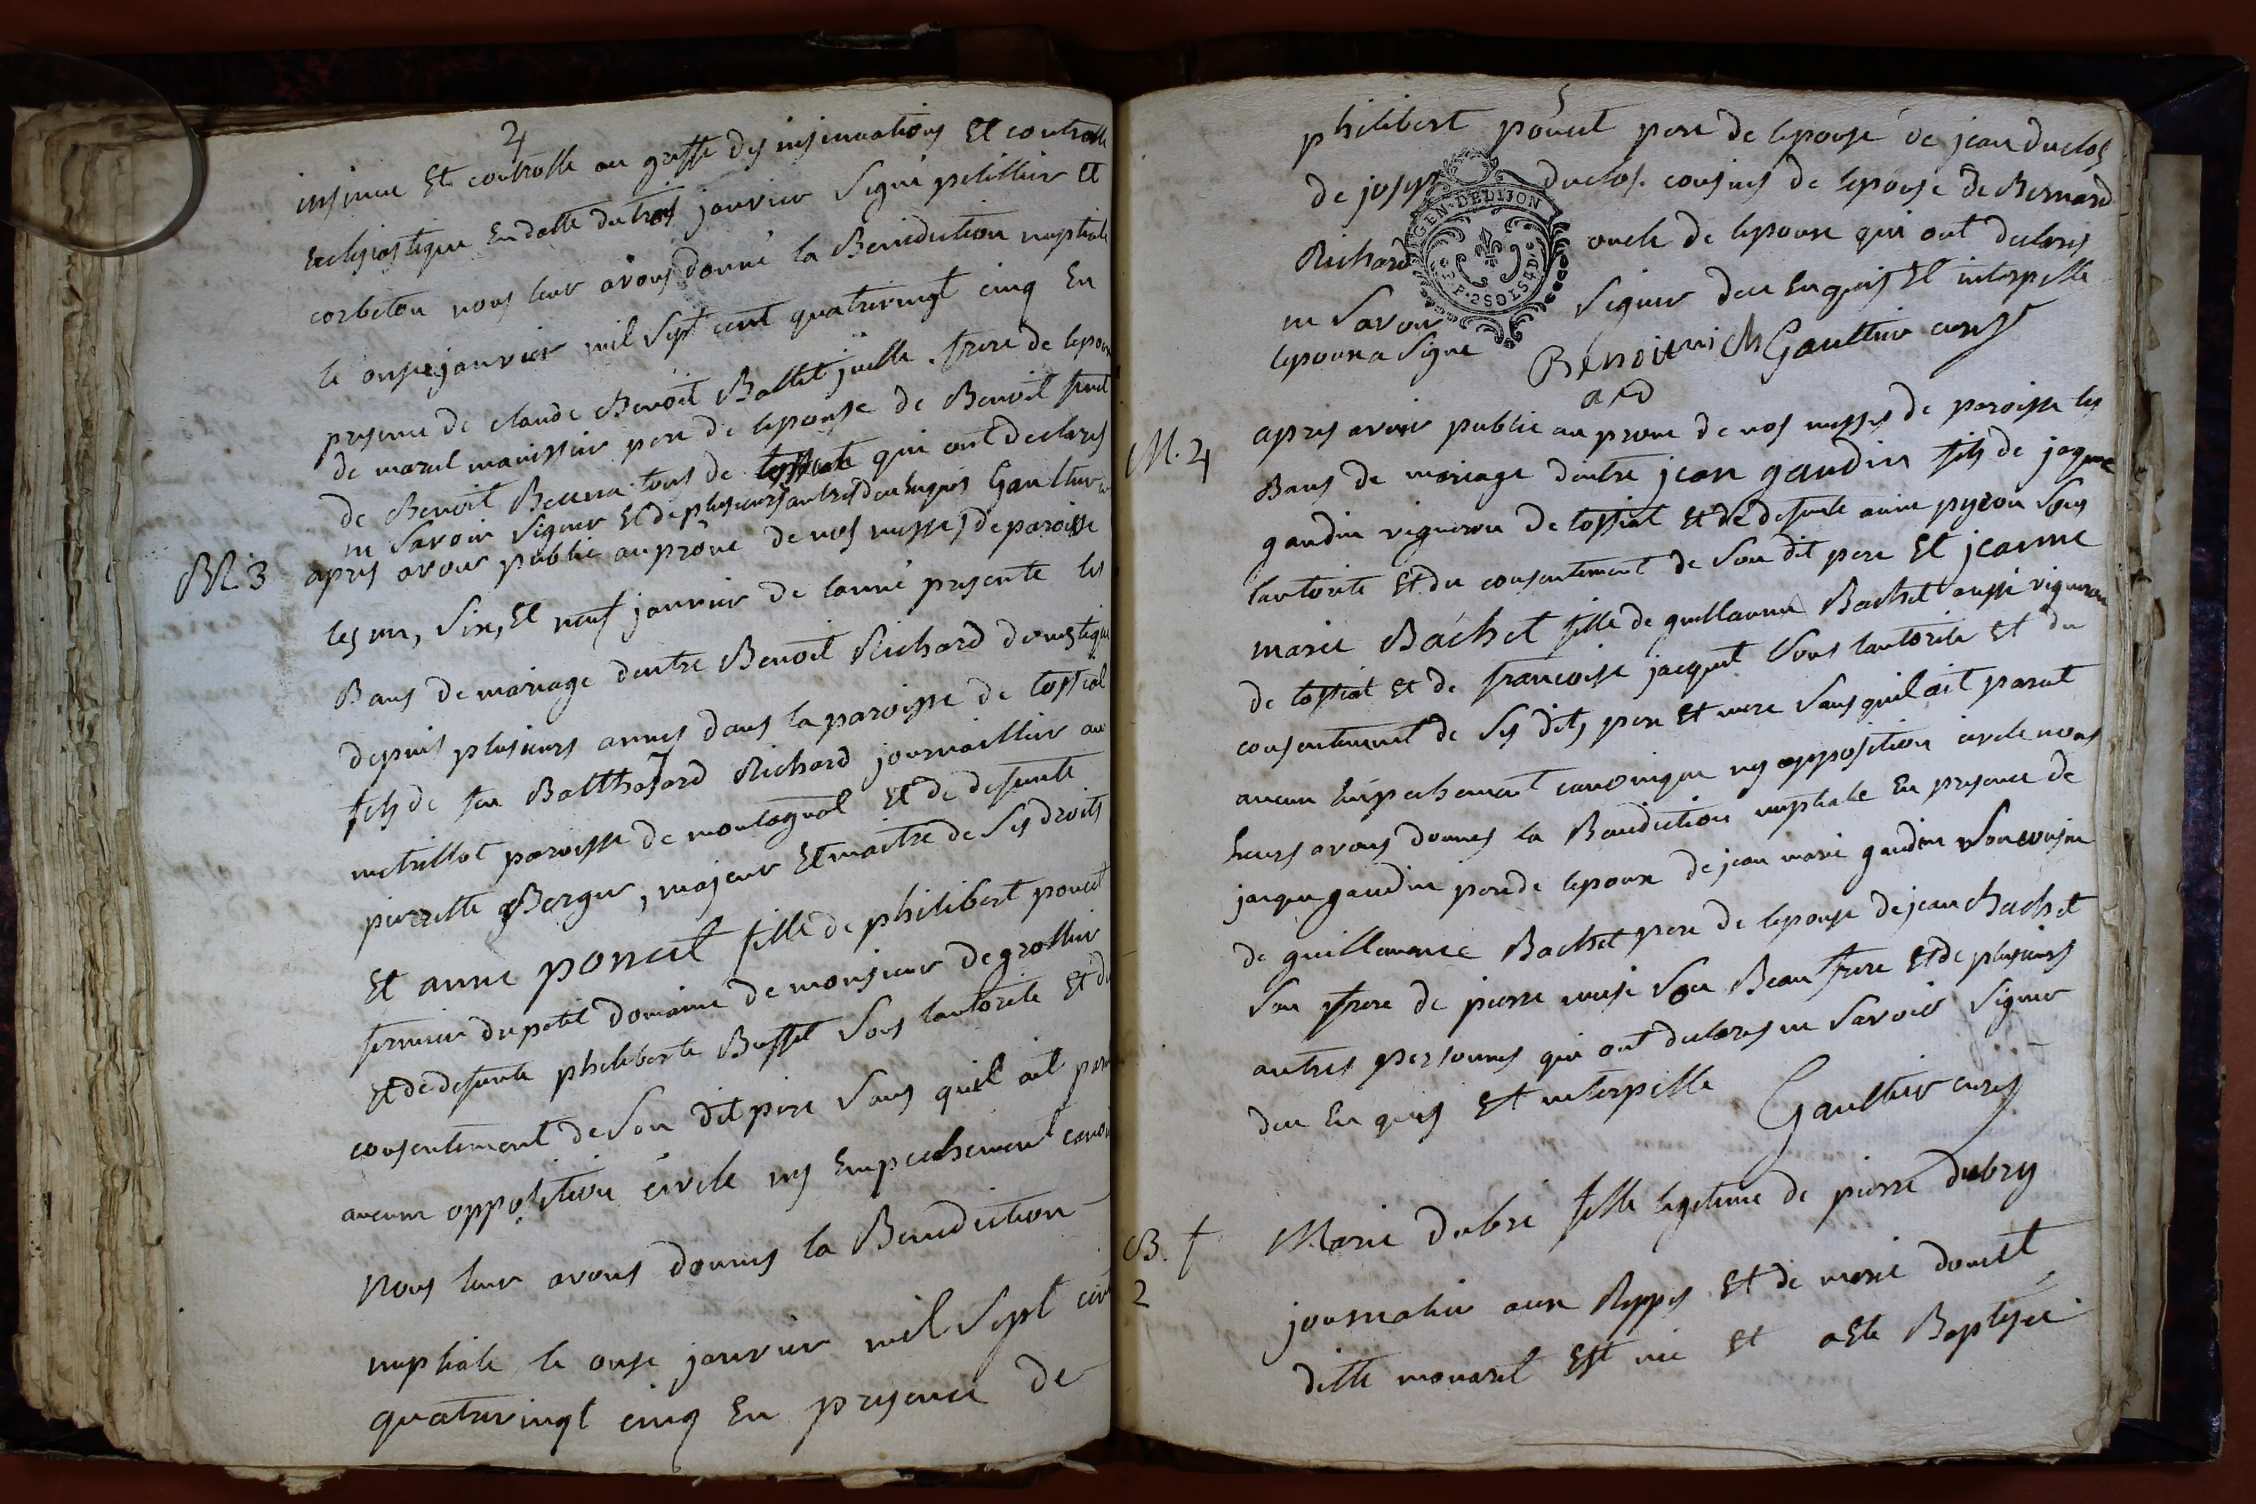 4
insinué Et controlle au greffe des insinuations Et controlle
Ecclesiastique En datte du trois janvier signé pelissier Et
corbeton nous leur avons donné la Benediction nuptiale
le onze janvier mil sept cent quatrevingt cinq En
presence de claude Benoit Ballet juille frere de lepoux
de marcel manissier pere de lepouse de Benoit
de Benoit tous de tossiat qui ont declares
ne savoir signer Et de plusieurs autres deu Enquis Gaultier
M. 3 apres avoir publié au prône de nos messes de paroisse
les un, six, Et neuf janvier de lanné presente les
Bans de mariage dentre Benoit Richard domestique
depuis plusieurs annes dans la paroisse de tossiat
fils de feu Balthasard Richard journaillier au
metrillot paroisse de montagnat Et de defunte
pierrette Berger, majeur Et maitre de ses droits
Et anne poncet fille de philibert poncet
fermier du petit domaine de monsieur de grollier
Et de defunte philiberte Buffet sous lautorite Et du
consentement de son dit pere sans quil ait paru
aucune opposition civile ny Empechement canon
Nous leur avons donnes la Benediction
nuptiale le onze janvier mil sept cent
quatrevingt cinq En presence de
5
philibert poncet pere de lepouse de jean duclos
de joseph duclos. cousins de lepouse de Bernard
Richard oncle de lepoux qui ont declares
ne savoir signer deu Enquis Et interpelle
lepoux a signe Benoit rich Gaultier curé
ard
GEN. DE DIJON
2 SOLS 4 D
M. 4 apres avoir publie au prone de nos messes de paroisse les
Bans de mariage dentre jean gaudin fils de jaque
gaudin vigneron de tossiat Et de defunte anne pyron sous
lautorite Et du consentement de son dit pere Et jeanne
marie Bachet fille de guillaume Bachet aussi vigneron
de tossiat Et de francoise jacquet sous lautorite Et du
consentement de ses dits pere Et mere sans quil ait parut
aucun Empechement canonique ny opposition civile nous
leurs avons donnes la Benediction nuptiale En presence de
jaque gaudin pere de lepoux de jean marie gaudin son cousin
de guillaume Bachet pere de lepouse de jean Bachet
son frere de pierre son Beau frere Et de plusieurs
autres personnes qui ont declares ne savoir signer
deu En quis Et interpelle Gaultier curé
B. † Marie dubri fille legitime de pierre dubry
2 journalier aux Rippes Et de marie doncet
ditte monarel Est née Et a Ete Baptisée